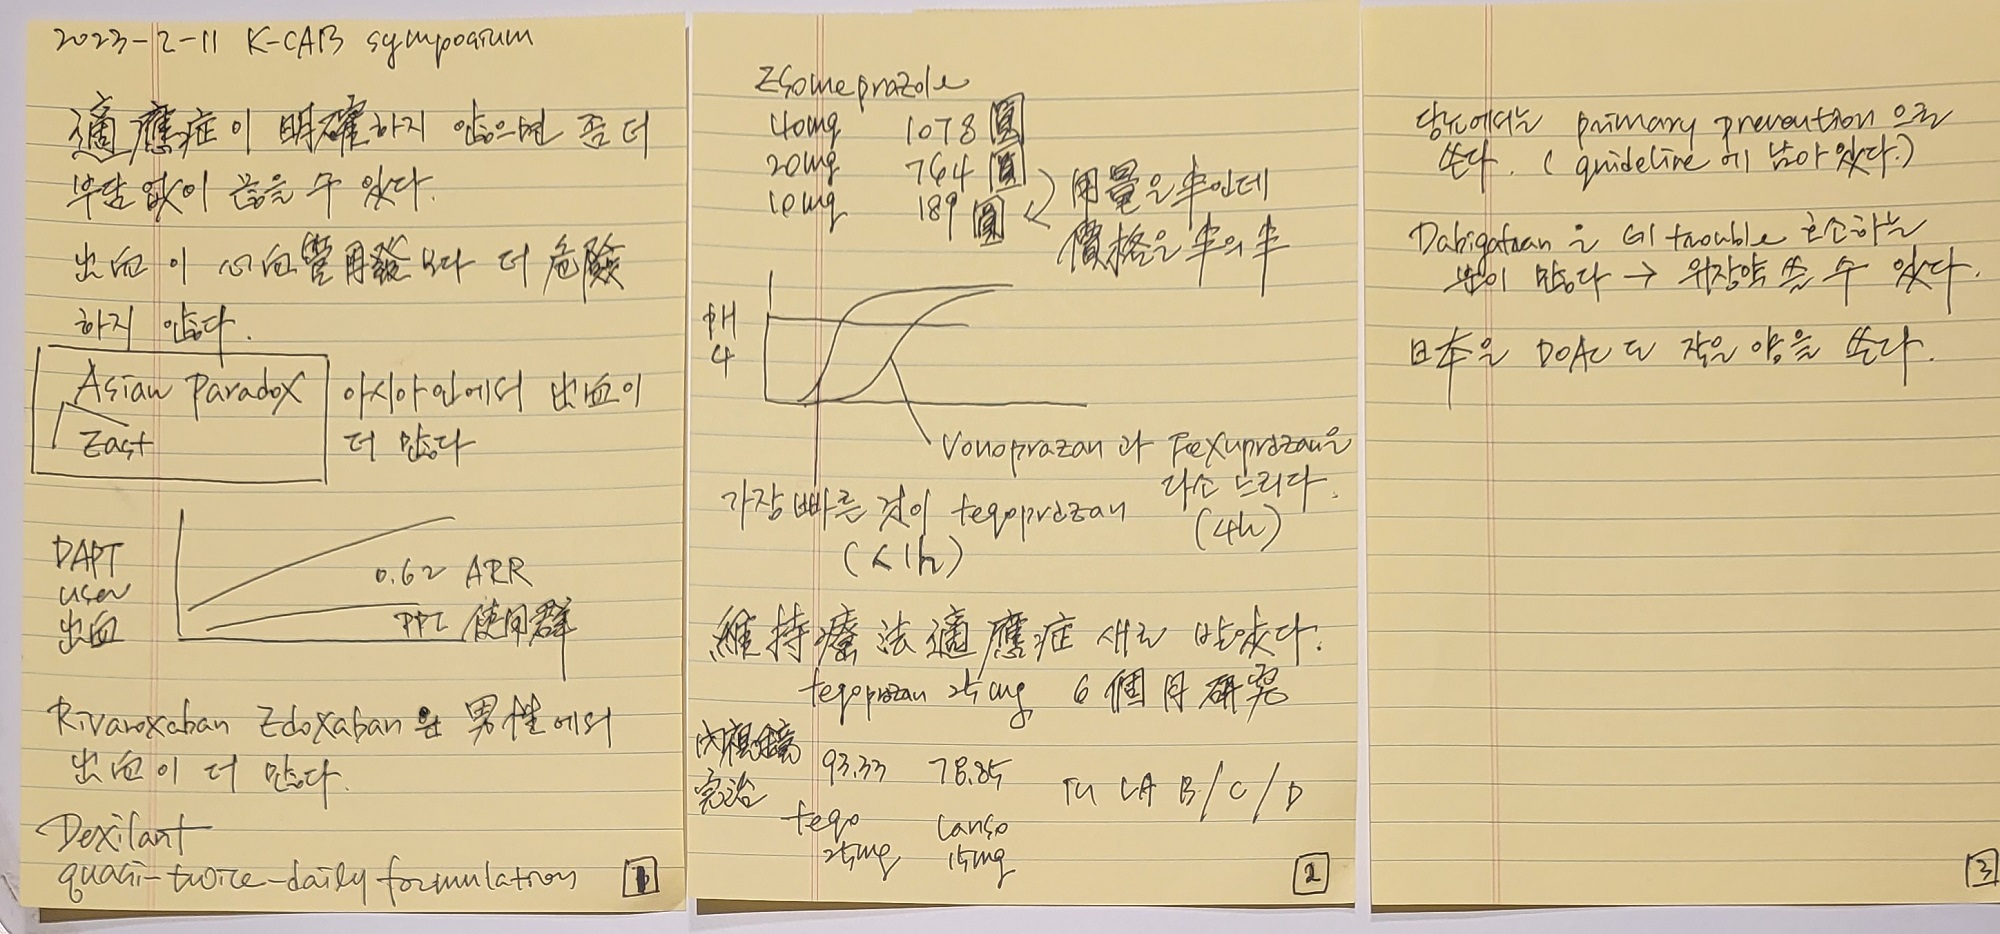 2023-2-11 K-CAB symposium
適應症이 明確하지 않으면 좀 더
부담없이 끊을 수 있다.
出血이 心血管再發보다 더 危險
하지 않다.
Asian Paradox
East
아시아인에서 出血이
더 많다
DAPT
user
出血
0.62 ARR
PPI 使用群
Rivaroxaban Edoxaban은 男性에서
出血이 더 많다.
Dexilant
quasi-twice-daily formulation
1
Esomeprazole
40mg 1078圓
20mg 764圓
10mg 189圓
用量은 半인데
價格은 半의 半
pH
4
Vonoprazan과 Fexuprazan은
다소 느리다.
(4h)
가장 빠른 것이 tegoprazan
(<1h)
維持療法適應症 새로 받았다.
tegoprazan 25mg 6個月 硏究
內視鏡
完治
93.33 78.85 in LA B/C/D
tego
25mg
Lanso
15mg
2
당뇨에서는 primary prevention으로
쓴다. (guideline에 남아있다.)
Dabigatran은 GI trouble 호소하는
분이 많다 → 위장약 쓸 수 있다.
日本은 DOAC도 작은 양을 쓴다.
3